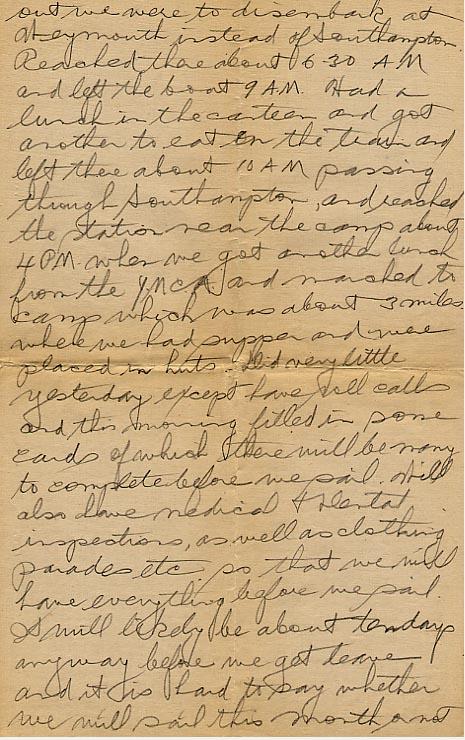 out we were to disembark at
Weymouth instead of Southampton.
Reached there about 6-30 AM
and left the boat 9 AM. Had a
lunch in the canteen and got
another to eat on the train and
left there about 10 AM passing
through Southampton, and reached
the station near the camp about
4 PM. when we got another lunch
from the YMCA and marched to
camp which was about 3 miles
where we had supper and were
placed in huts. Did very little
yesterday except have roll calls
and this morning filled in some
cards of which there will be many
to complete before we sail. Will
also have medical & dental
inspections, as well as clothing
parades etc so that we will
have everything before we sail.
It will likely be about ten days
anyway before we get leave
and it is hard to say whether
we will sail this month or not